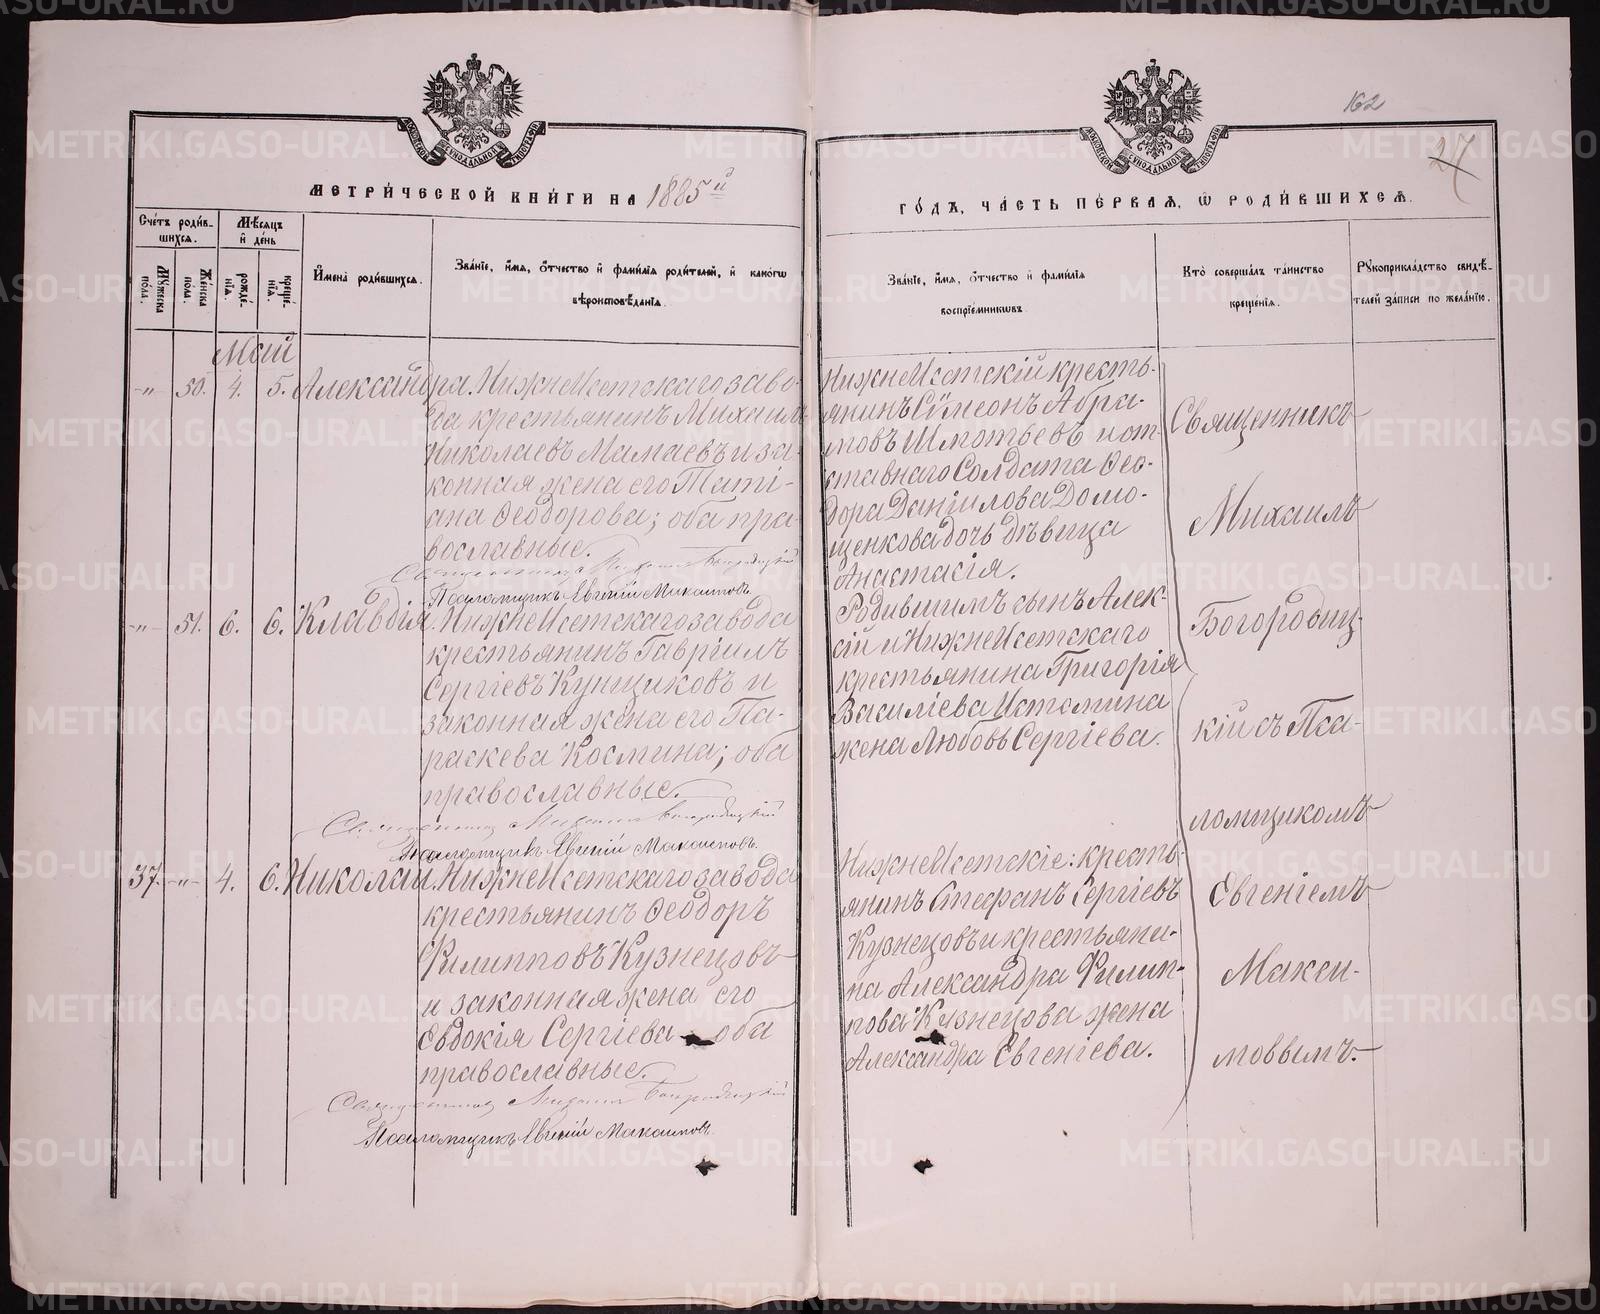 162
27
МЕТРИ́ЧЕСКОЙ КНИ́ГИ НА 1885й
ГО́ДЪ, ЧА́СТЬ ПЕ́РВАѦ, Ѡ РОДИ́ВШИХСѦ.
Сче́тъ роди́в-
шихсѧ.
Мꙋжеска пола.
Же́нска пола.
Мѣ́сѧцъ
и҆ де́нь
рожде́-
нїѧ.
креще́-
нїѧ.
И҆мена̀ роди́вшихсѧ.
Зва́нїе, и҆́мѧ, ѻ҆́тчество и҆ фами́лїѧ роди́телей, и҆ како́гѡ
вѣроисповѣ́данїѧ.
Зва́нїе, и҆́мѧ, ѻ҆́тчество и҆ фами́лїѧ
воспрїе́мникѡвъ.
Кто̀ соверша́лъ та́инство
креще́нїѧ.
Рꙋкоприкла́дство свидѣ́-
телей за́писи по жела́нїю.
Май
-„- 50. 4. 5. Александра. НижнеИсетскаго заво-
да крестьянинъ Михаилъ
Николаевъ Мамаевъ и за-
конная жена его Тати-
ана Ѳеодорова; оба пра-
вославные.
Священникъ Михаилъ Богородицкій
Псаломщикъ Евгеній Максимовъ.
НижнеИсетскій кресть-
янинъ Сѵмеонъ Абра-
мовъ и от-
ставнаго Солдата Ѳео-
дора Даніилова Домо-
щенкова дочь дѣвица
Анастасія.
-„- 51. 6. 6. Клавдія. НижнеИсетскаго завода
крестьянинъ Гавріилъ
Сергіевъ Кунщиковъ и
законная жена его Па-
раскева Космина; оба
православные.
Священникъ Михаилъ Богородицкій
Псаломщикъ Евгеній Максимовъ.
Родившимъ сынъ Алек-
сій и НижнеИсетскаго
крестьянина Григорія
Василіева Истомина
жена Любовь Сергіева.
37. -„- 4. 6. Николай. НижнеИсетскаго завода
крестьянинъ Ѳеодоръ
Филипповъ Кузнецовъ
и законная жена его
Евдокія Сергіева оба
православные.
Священникъ Михаилъ Богородицкій
Псаломщикъ Евгеній Максимовъ.
НижнеИсетскіе: кресть-
янинъ Стефанъ Сергіевъ
Кузнецовъ и крестьяни-
на Александра Филип-
пова Кузнецова жена
Александра Евгеніева.
Священникъ
Михаилъ
Богородиц-
кій съ Пса-
ломщикомъ
Евгеніемъ
Макси-
мовымъ.
METRIKI.GASO-URAL.RU